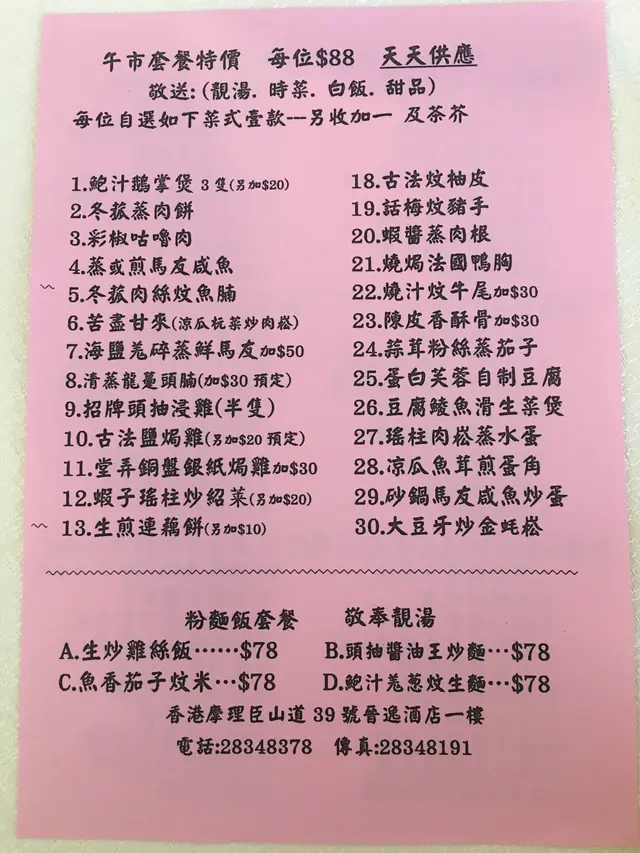 午市套餐特價　每位$88　天天供應
敬送:(靚湯. 時菜. 白飯. 甜品)
每位自選如下菜式壹款---另收加一 及茶芥
1.鮑汁鵝掌煲 3 隻(另加$20)
2.冬菰蒸肉餅
3.彩椒咕嚕肉
4.蒸或煎馬友咸魚
5.冬菰肉絲炆魚腩
6.苦盡甘來(涼瓜杬菜炒肉崧)
7.海鹽羗碎蒸鮮馬友加$50
8.清蒸龍躉頭腩(加$30 預定)
9.招牌頭抽浸雞(半隻)
10.古法鹽焗雞(另加$20 預定)
11.堂弄銅盤銀紙焗雞加$30
12.蝦子瑤柱炒紹菜(另加$20)
13.生煎連藕餅(另加$10)
18.古法炆柚皮
19.話梅炆豬手
20.蝦醬蒸肉根
21.燒焗法國鴨胸
22.燒汁炆牛尾加$30
23.陳皮香酥骨加$30
24.蒜茸粉絲蒸茄子
25.蛋白芙蓉自制豆腐
26.豆腐鯪魚滑生菜煲
27.瑤柱肉崧蒸水蛋
28.凉瓜魚茸煎蛋角
29.砂鍋馬友咸魚炒蛋
30.大豆牙炒金蚝崧
粉麵飯套餐　敬奉靚湯
A.生炒雞絲飯⋯⋯$78
B.頭抽醬油王炒麵⋯$78
C.魚香茄子炆米⋯$78
D.鮑汁羗葱炆生麵⋯$78
香港摩理臣山道 39 號晉逸酒店一樓
電話:28348378　傳真:28348191